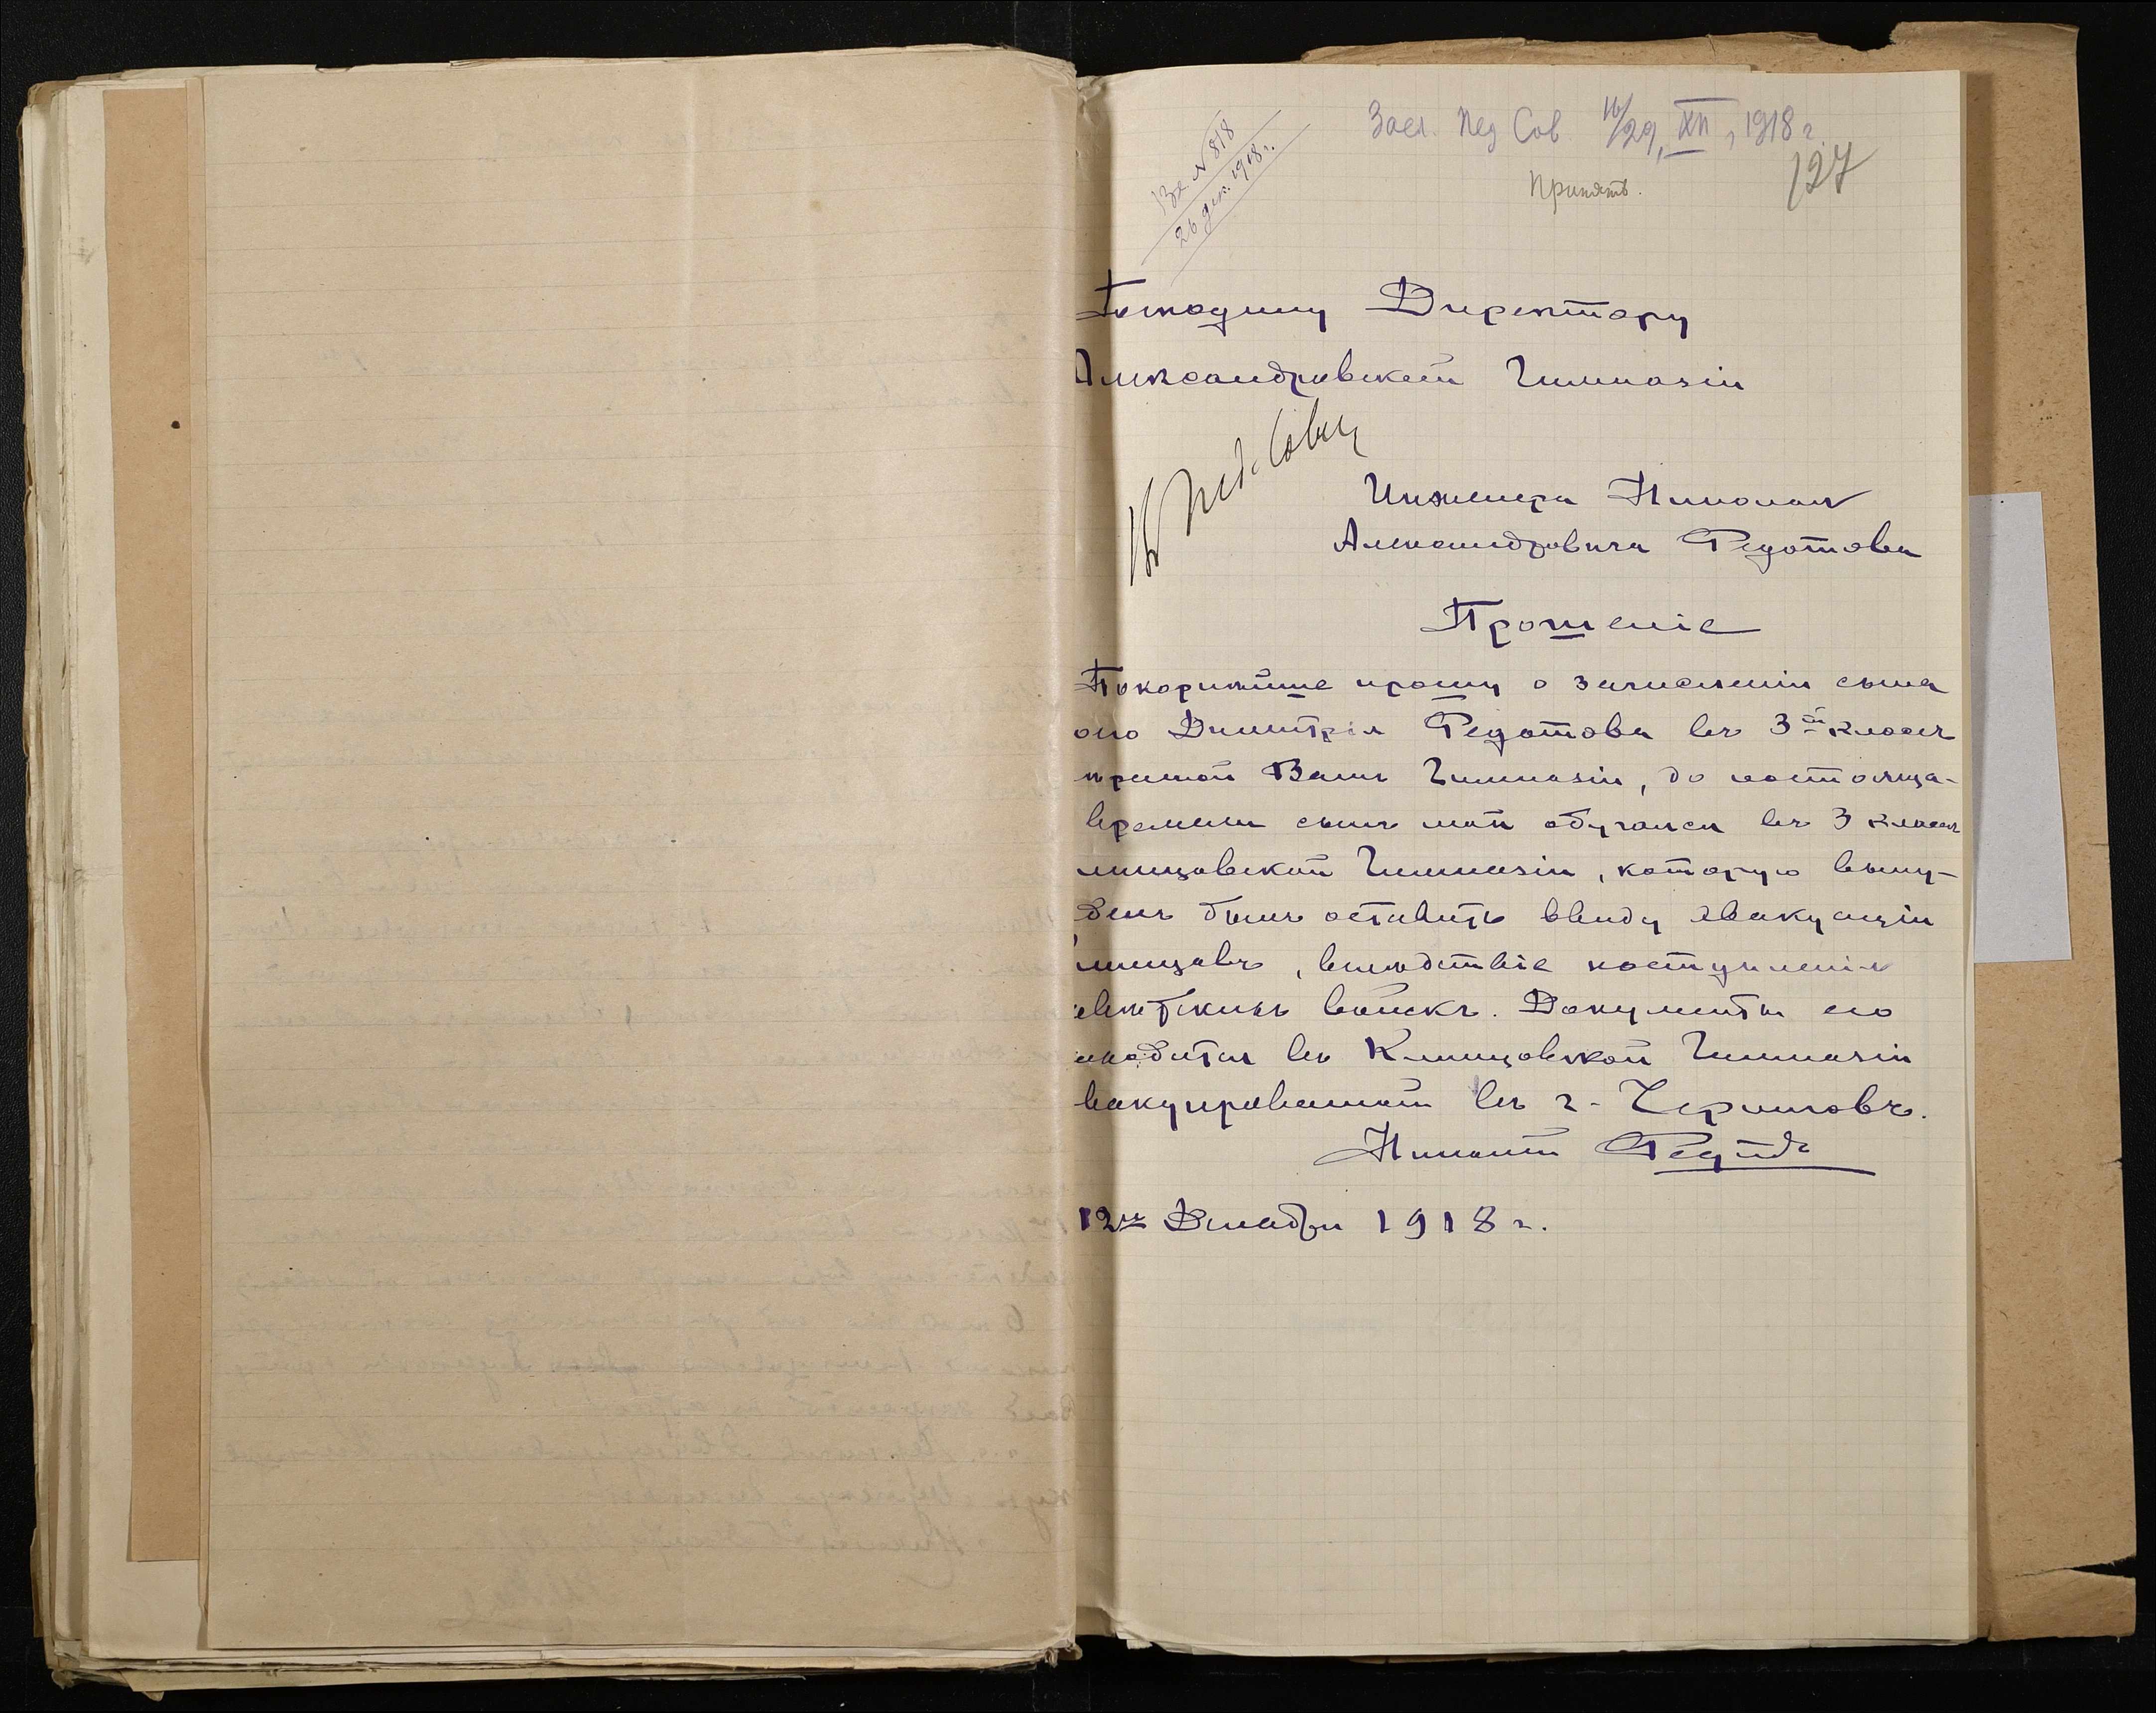 Вх. № 818
26 дек. 1918 г.
Засѣд. Пед Сов 16/29, XII, 1918 г.
127
Принять.
Господину Директору
Александровской Гимназіи
Въ Пед. Совѣт
Инженера Николая
Александровича Федотова
Прошеніе
Покорнѣйше прошу о зачисленіи сына
его Димитрія Федотова въ 3й классъ
ѣренной Вамъ Гимназіи, до настояща-
времени сынъ мой обучался въ 3 классѣ
линцовской Гимназіи, которую выну-
денъ былъ оставить ввиду эвакуаціи
линцовъ, вслѣдствіе наступленія
овѣтскихъ войскъ. Документы его
аходятся въ Клинцовской Гимназіи
вакуированной въ г. Черниговъ.
Николай Федотовъ
12го Декабря 1918 г.